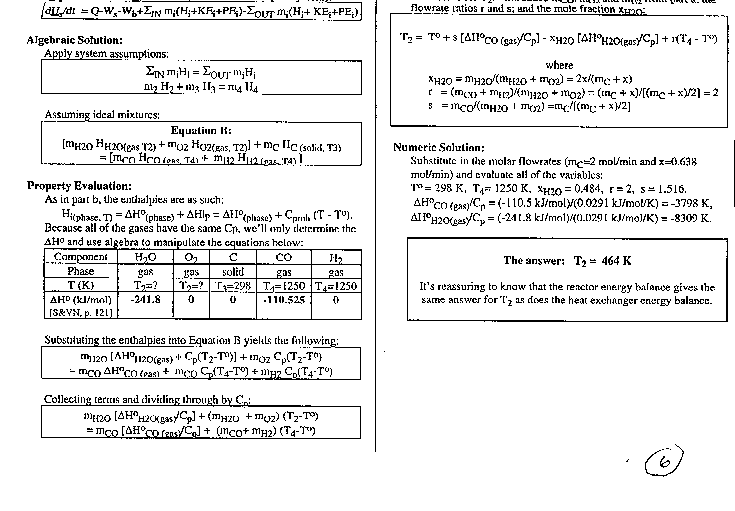 dU_s/dt = Q-W_s-W_b+Σ_IN m_i(H_i+KE_i+PE_i)-Σ_OUT m_j(H_j+ KE_j+PE_j)
Algebraic Solution:
Apply system assumptions:
Σ_IN m_iH_i = Σ_OUT m_jH_j
m_2 H_2 + m_3 H_3 = m_4 H_4
Assuming ideal mixtures:
Equation B:
[m_H2O H_H2O(gas, T2) + m_O2 H_O2(gas, T2)] + m_C H_C (solid, T3)
= [m_CO H_CO (gas, T4) + m_H2 H_H2 (gas, T4) ]
Property Evaluation:
As in part b, the enthalpies are as such:
H_i(phase, T) = ΔH^o_(phase) + ΔH_P = ΔH^o_(phase) + C_pmh (T - T^o).
Because all of the gases have the same Cp, we'll only determine the
ΔH^o and use algebra to manipulate the equations below:
Component H_2O O_2 C CO H_2
Phase gas gas solid gas gas
T (K) T_2=? T_2=? T_3=298 T_4=1250 T_4=1250
ΔH^o (kJ/mol) -241.8 0 0 -110.525 0
[S&VN, p. 121]
Substituting the enthalpies into Equation B yields the following:
m_H2O [ΔH^o_H2O(gas) + C_p(T_2-T^o)] + m_O2 C_p(T_2-T^o)
= m_CO ΔH^o_CO (gas) + m_CO C_p(T_4-T^o) + m_H2 C_p(T_4-T^o)
Collecting terms and dividing through by C_p:
m_H2O [ΔH^o_H2O(gas)/C_p] + (m_H2O + m_O2) (T_2-T^o)
= m_CO [ΔH^o_CO (gas)/C_p] + (m_CO+ m_H2) (T_4-T^o)
flowrate ratios r and s; and the mole fraction x_H2O:
T_2 = T^o + s [ΔH^o_CO (gas)/C_p] - x_H2O [ΔH^o_H2O(gas)/C_p] + r(T_4 - T^o)
where
x_H2O = m_H2O/(m_H2O + m_O2) = 2x/(m_C + x)
r = (m_CO + m_H2)/(m_H2O + m_O2) = (m_C + x)/[(m_C + x)/2] = 2
s = m_CO/(m_H2O + m_O2) =m_C/[(m_C + x)/2]
Numeric Solution:
Substitute in the molar flowrates (m_C=2 mol/min and x=0.638
mol/min) and evaluate all of the variables:
T^o = 298 K, T_4= 1250 K, x_H2O = 0.484, r = 2, s = 1.516.
ΔH^o_CO (gas)/C_p = (-110.5 kJ/mol)/(0.0291 kJ/mol/K) = -3798 K,
ΔH^o_H2O(gas)/C_p = (-241.8 kJ/mol)/(0.0291 kJ/mol/K) = -8309 K.
The answer: T_2 = 464 K
It's reassuring to know that the reactor energy balance gives the
same answer for T_2 as does the heat exchanger energy balance.
6